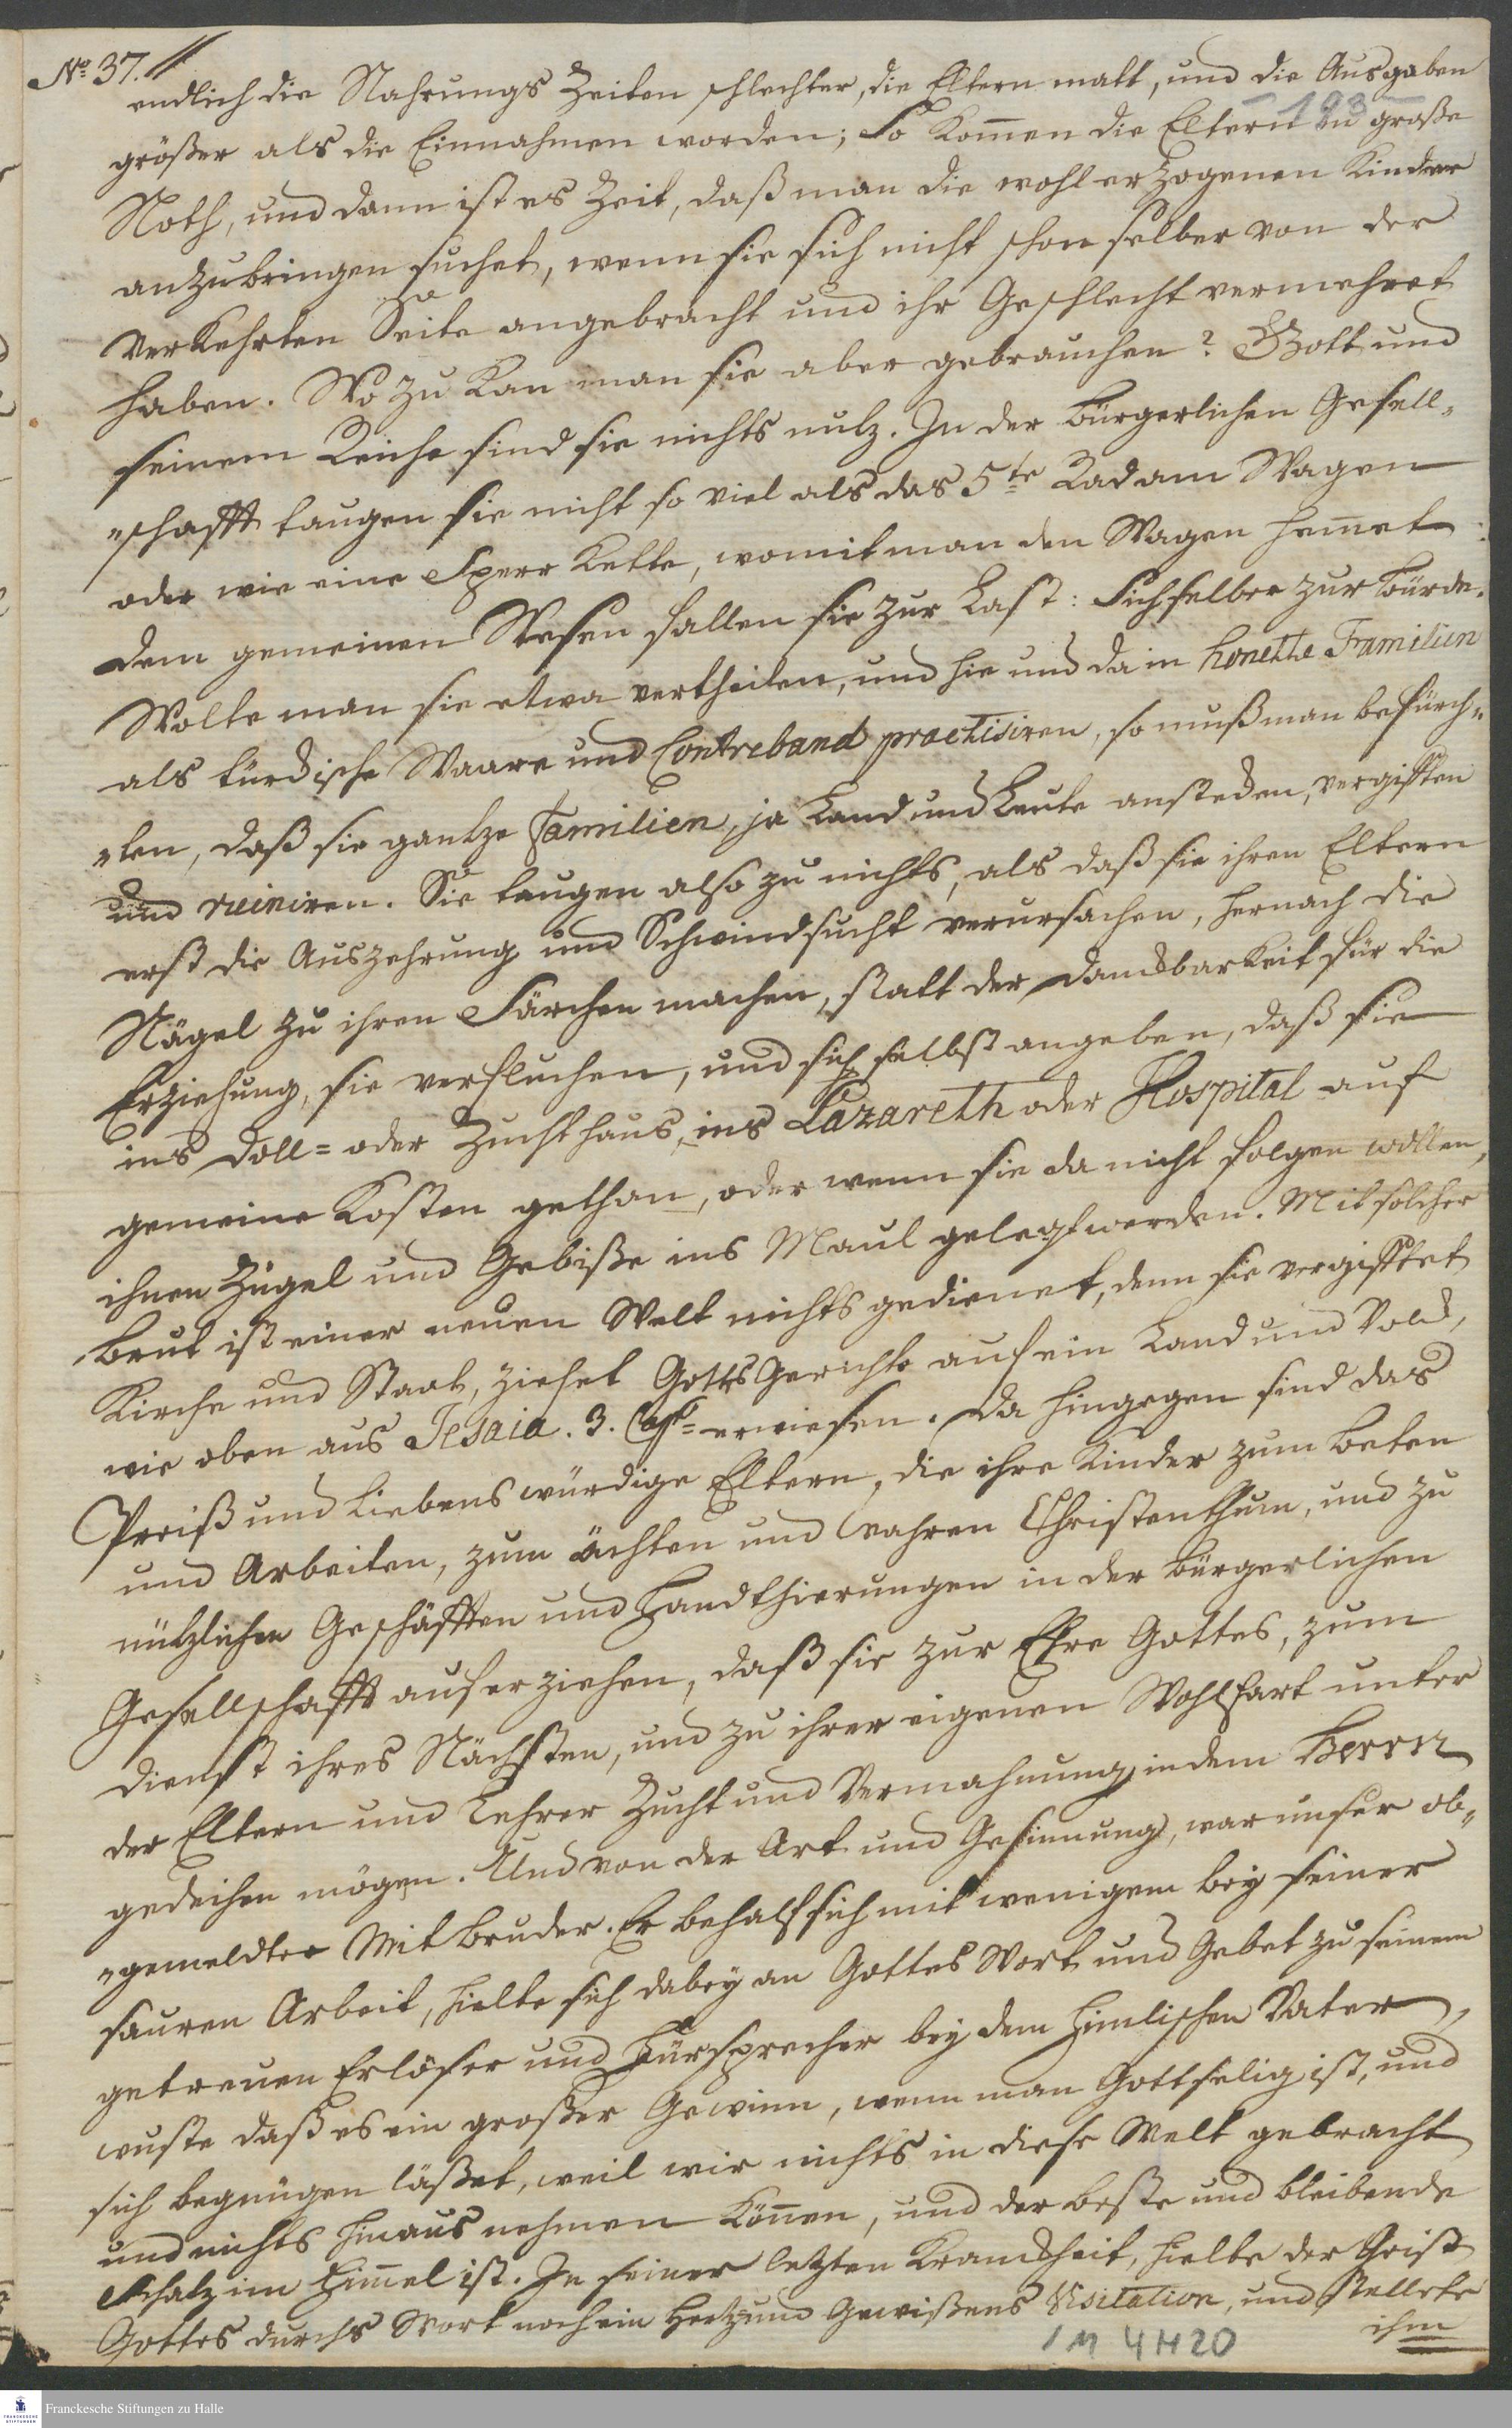 No 37.
endlich die Nahrungs Zeiten schlechter, die Eltern matt, und die Ausgaben
- 193 -
größer als die Einnahmen worden; So kom̄en die Eltern in große
Noth, und dann ist es Zeit, daß man die wohl erzogenen Kinder
anzubringen suchet, wenn sie sich nicht schon selber von der
verkehrten Seite angebracht und ihr Geschlecht vermehret
haben. Wo zu kan man sie aber gebrauchen? Gott und
seinem Reiche sind sie nichts nutz. In der bürgerlichen Gesell„
„schafft taugen sie nicht so viel als das 5te Rad am Wagen
oder wie eine Sperr Kette, womit man den Wagen hem̄et:
dem gemeinen Wesen fallen sie zur Last: Sich selber zur bürde.
Wolte man sie etwa vertheilen, und hie und da in honette Familien
als türckische Waare und Contreband practisiren, so muß man befürch„
„ten, daß sie gantze Familien, ja Land und Leute anstecken, vergifften
und ruiniren. Sie taugen also zu nichts, als daß sie ihren Eltern
erst die Auszehrung und Schwindsucht verursachen, hernach die
Nägel zu ihren Särchen machen, statt der Danckbarkeit für die
Erziehung, sie verfluchen, und sich selbst angeben, daß sie
ins Doll= oder Zuchthaus, ins Lazareth oder Hospital auf
gemeine Kosten gethan, oder wenn sie da nicht folgen wollen,
ihnen Zügel und Gebiße ins Maul gelegt werden. Mit solcher
brut ist einer neuen Welt nichts gedienet, denn sie vergifftet
Kirche und Staat, ziehet Gottes Gerichte auf ein Land und Volck,
wie oben aus Jesaia. 3. Cap. erwiesen. Da hingegen sind das
Preiß und Liebens würdige Eltern, die ihre Kinder zum beten
und Arbeiten, zum ächten und wahren Christenthum, und zu
nützlichen Geschäfften und Handthierungen in der bürgerlichen
Gesellschafft auferziehen, daß sie zur Ehre Gottes, zum
Dienst ihres Nächsten, und zu ihrer eigenen Wohlfart unter
der Eltern und Lehrer Zucht und Vermahnung in dem Herrn
gedeihen mögen. Und von der Art und Gesinnung, war unser ob„
„gemeldter Mit bruder. Er behalf sich mit wenigem bey seiner
sauren Arbeit, hielte sich dabey an Gottes Wort und Gebet zu seinem
getreuen Erlöser und Fürsprecher bey dem Him̄lischen Vater,
wuste daß es ein großer Gewinn, wenn man Gottselig ist, und
sich begnügen läßet, weil wir nichts in diese Welt gebracht
und nichts hinaus nehmen kön̄en, und der beste und bleibende
Schatz im Him̄el ist. In seiner letzten Kranckheit, hielte der Geist
Gottes durchs Wort noch ein Hertz und Gewißens Visitation, und stellete
ihm
1 M 4 H 20
Franckesche Stiftungen zu Halle